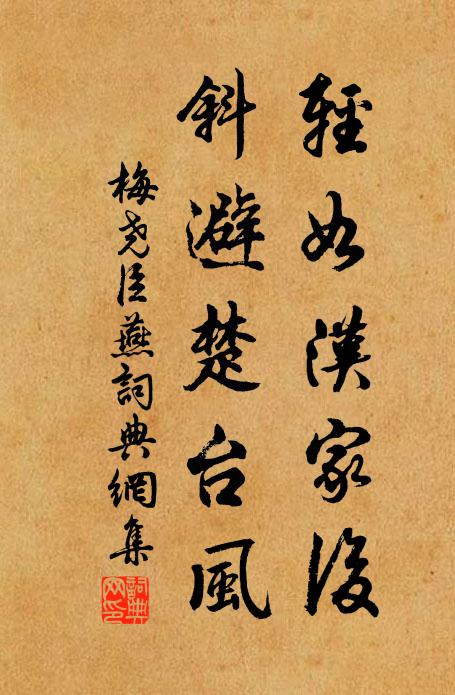 輕如漢家後
斜避楚台風
梅堯臣燕詞典網集
詞典
网印